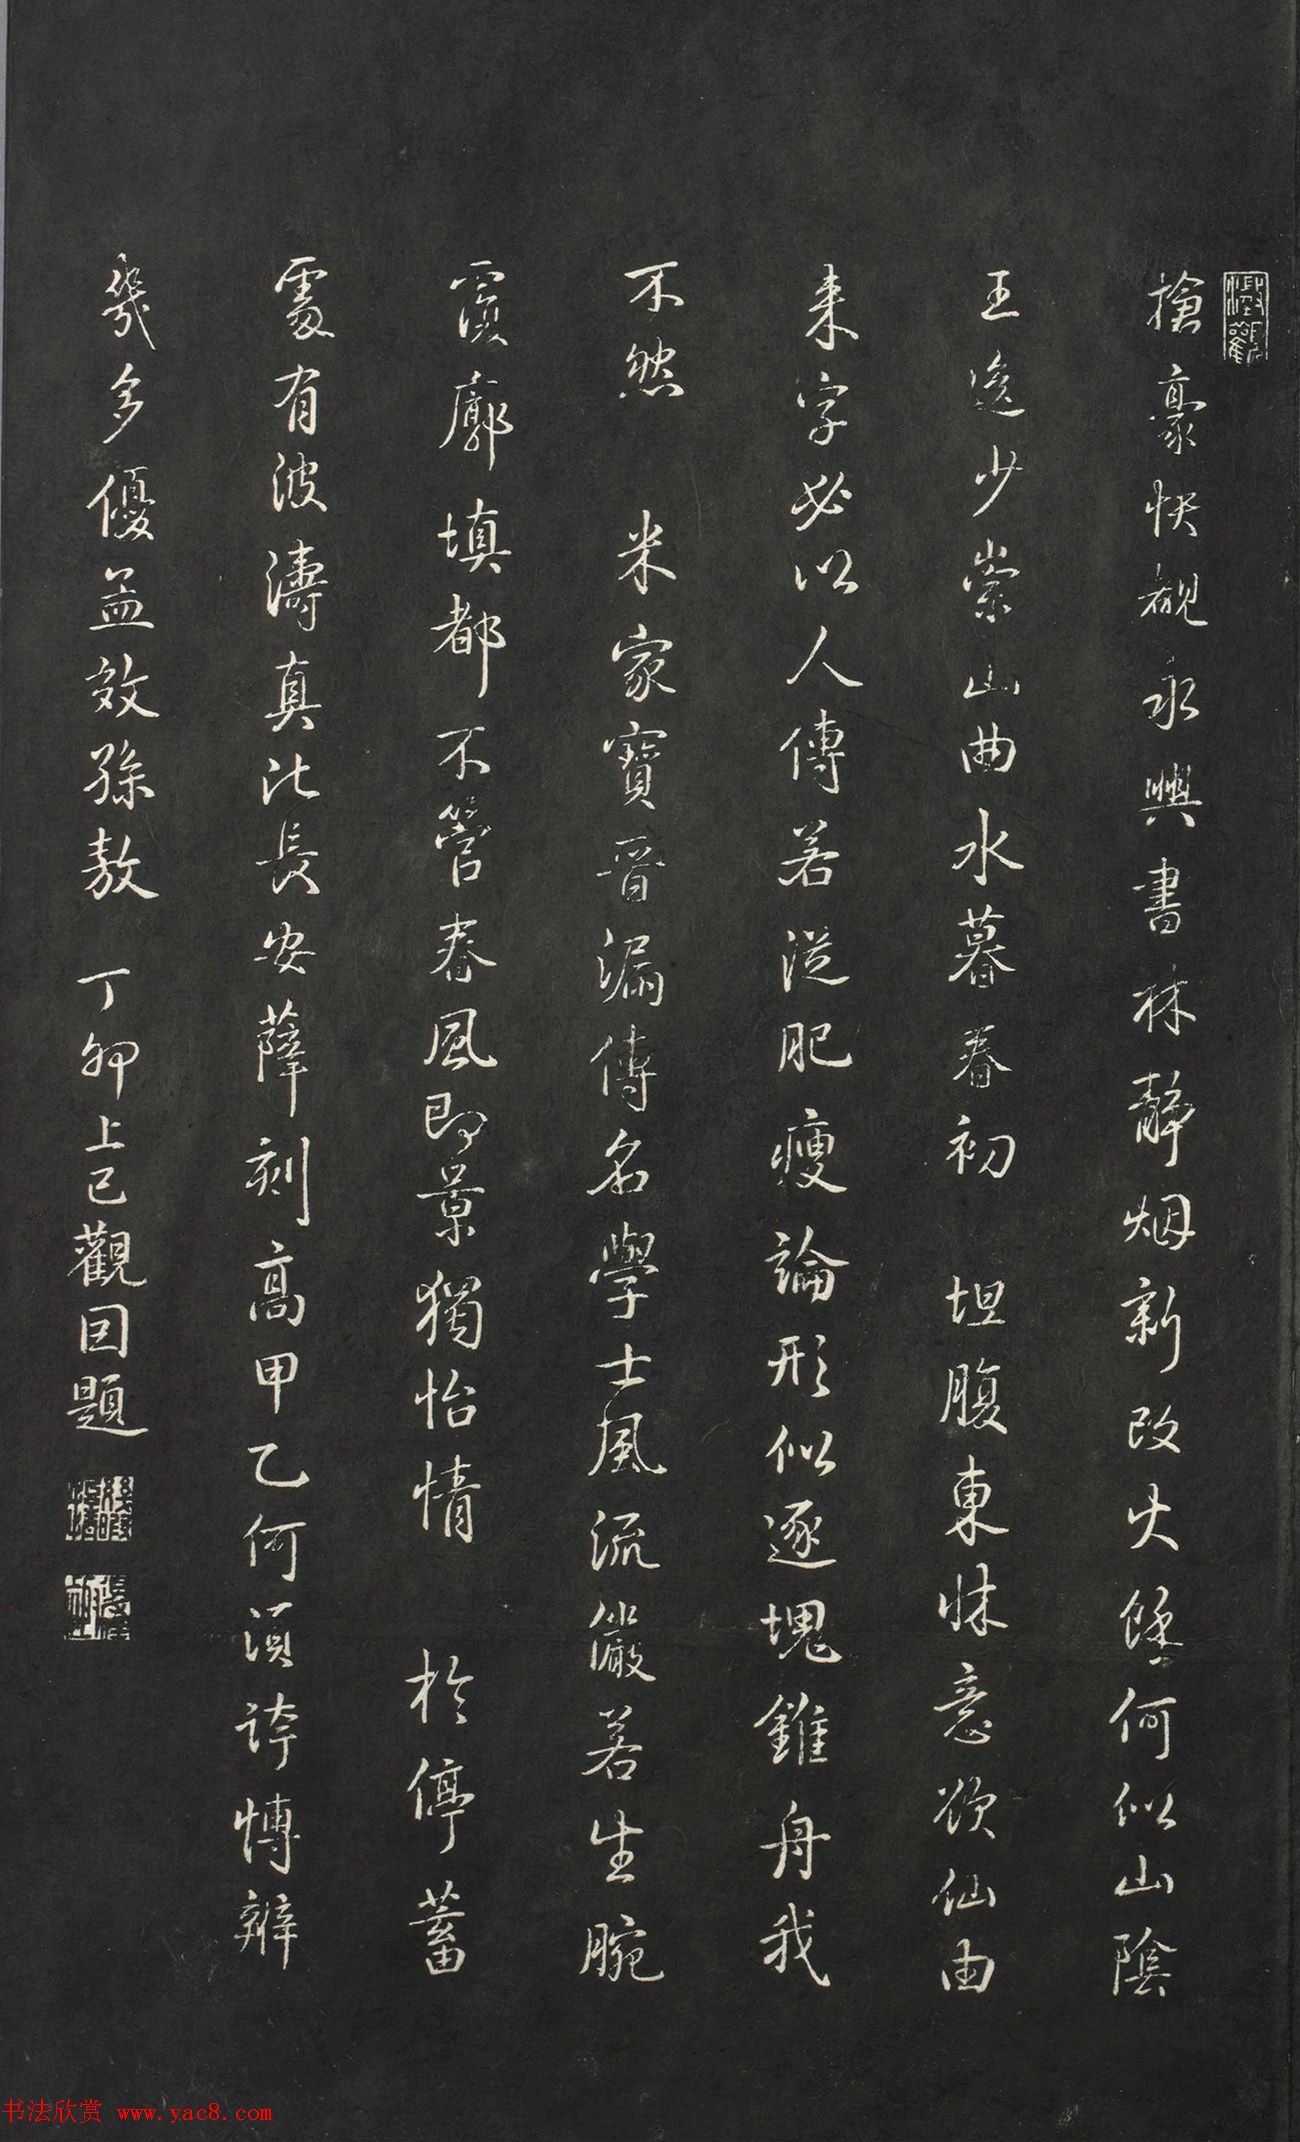 搶豪快覩永興書林靜烟新改火餘何似山陰
王逸少崇山曲水暮春初 坦腹東牀意欲仙由
来字必以人傳若從肥瘦論形似逐塊錐舟我
不然 米家寶晉漏傳名學士風流儼若生腕
裏廓填都不管春風即景獨怡情 於停蓄
處有波濤真比長安薛刻高甲乙何須誇愽辨
幾多優孟效孫敖 丁卯上巳觀回題
澂觀
书法欣赏 www.yac8.com